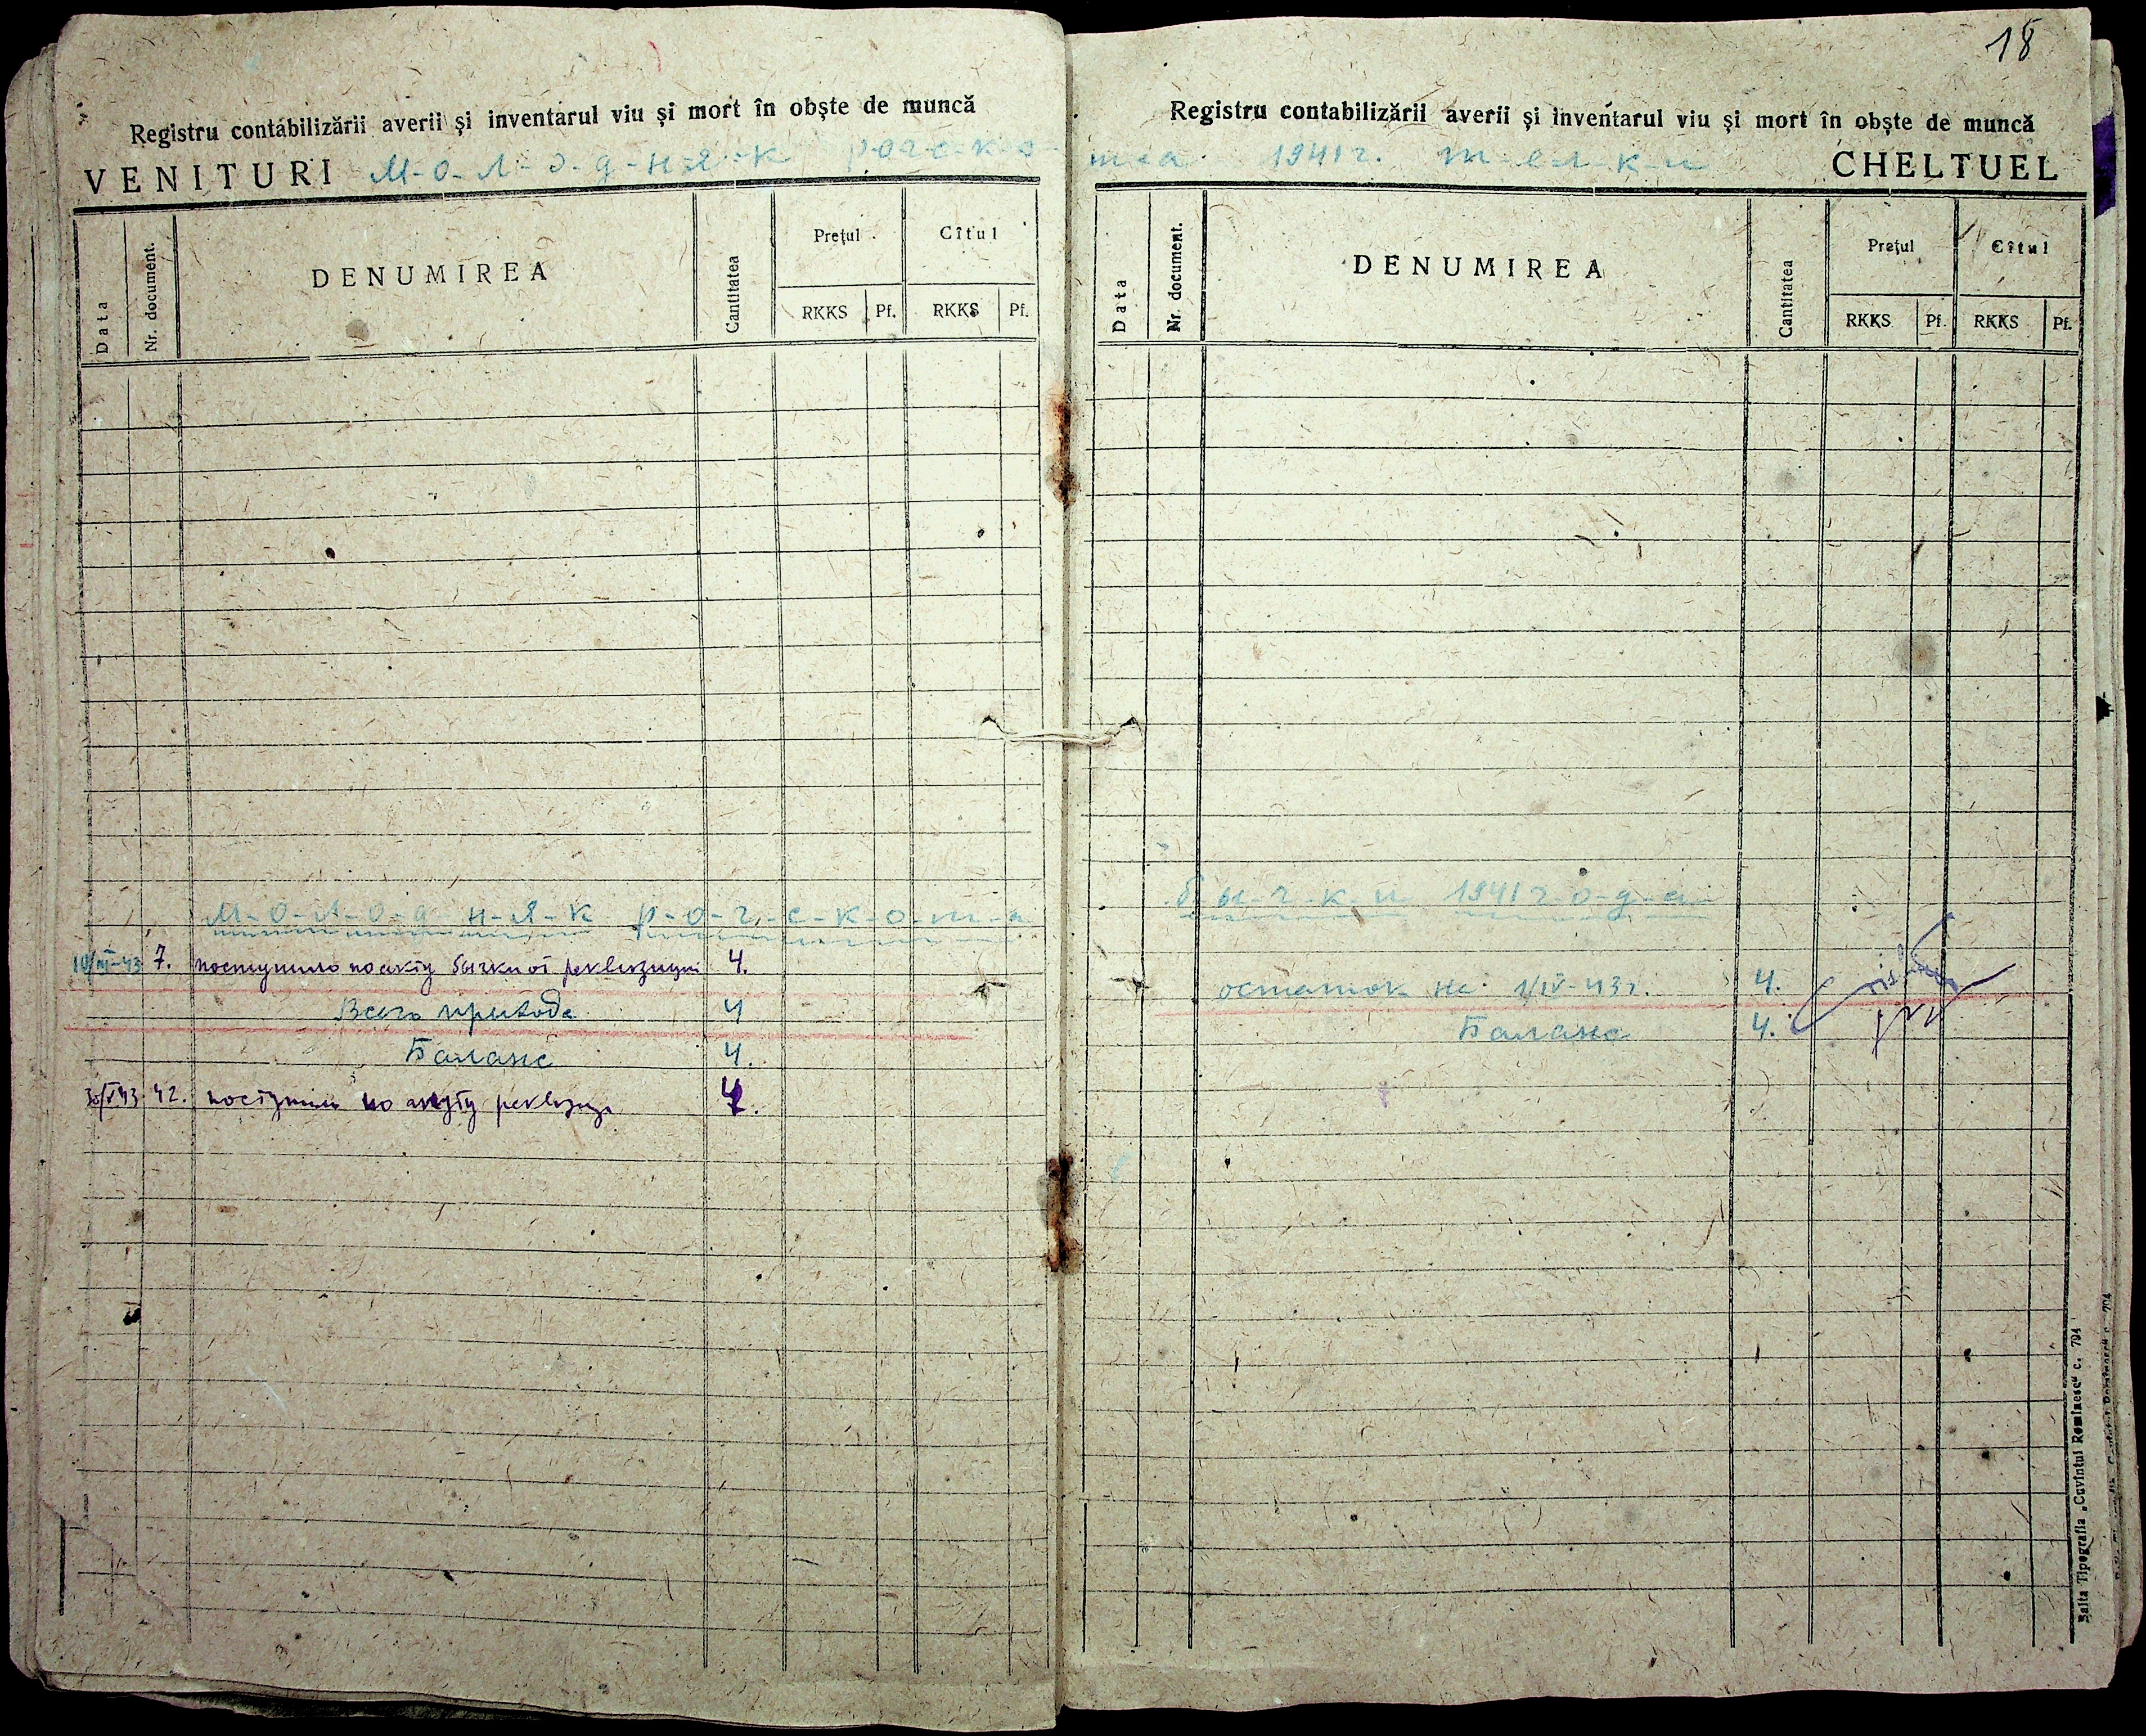 18
Registru contabilizării averii și inventarul viu și mort în obște de muncă
VENITURI М-о-л-о-д-н-я-к рогско-
Data
Nr. document.
DENUMIREA
Cantitatea
Prețul
Cîtul
RKKS
Pf.
RKKS
Pf.
М-о-л-о-д-н-я-к р-о-г-с-к-о-т-а
10/III-43 7. поступило по акту бычки от реквизиции 4.
Всего прихода 4
Баланс 4.
30/V 43 42. поступило по акту реквизиц.
Registru contabilizării averii și inventarul viu și mort în obște de muncă
та 1941 г. т-е-л-к-и CHELTUEL
Data
Nr. document.
DENUMIREA
Cantitatea
Prețul
Cîtul
RKKS
Pf.
RKKS
Pf.
б-ы-ч-к-и 1941 г-о-д-а
остаток на 1/IV-43 г. 4.
Баланс 4.
Balta Tipografia „Cuvîntul Romînesc" c. 794